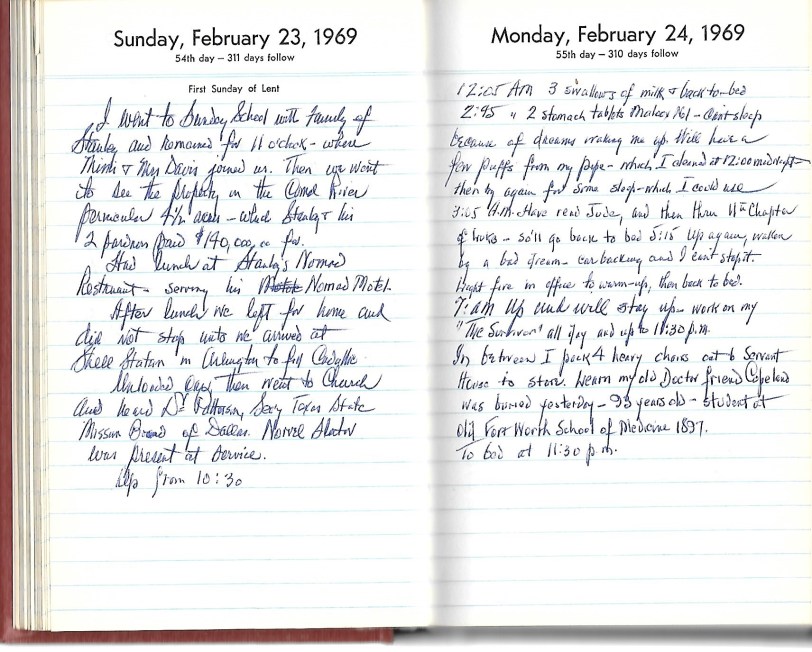 Sunday, February 23, 1969
54th day — 311 days follow
First Sunday of Lent
I went to Sunday School with family of
Stanley and remained for 11 o'clock - where
Mimi & Mrs Davis joined us. Then we went
to see the property on the Comal River
4½ acres - which Stanley & his
2 partners paid $140,000.00 for.
Had lunch at Stanley's Nomad
Restaurant - serving his Nomad Motel.
After lunch we left for home and
did not stop until we arrived at
Shell Station in Arlington to fill
Unloaded then went to Church
and heard Dr Patterson, Secy Texas State
Mission Board of Dallas. Norvel Slater
was present at service.
from 10:30
Monday, February 24, 1969
55th day — 310 days follow
12:05 AM 3 swallows of milk & back to bed
2:45 " 2 stomach tablets Maalox No1 - Can't sleep
because of dreams waking me up. Will have a
few puffs from my pipe - which I cleaned at 12:00 midnight -
then try again for some sleep - which I could use
3:05 A.M. Have read Jude, and then thru 11th Chapter
of Luke - so'll go back to bed 5:15 Up again, awaken
by a bad dream - car backing and I can't stop it.
Light fire in office to warm-up, then back to bed.
7: am Up and will stay up - work on my
"The Survivor" all day and up to 11:30 p.m.
In between I pack 4 heavy chairs out to Servant
House to store. Learn my old Doctor friend Copeland
was buried yesterday - 93 years old - student at
old Fort Worth School of Medicine 1897.
To bed at 11:30 p.m.